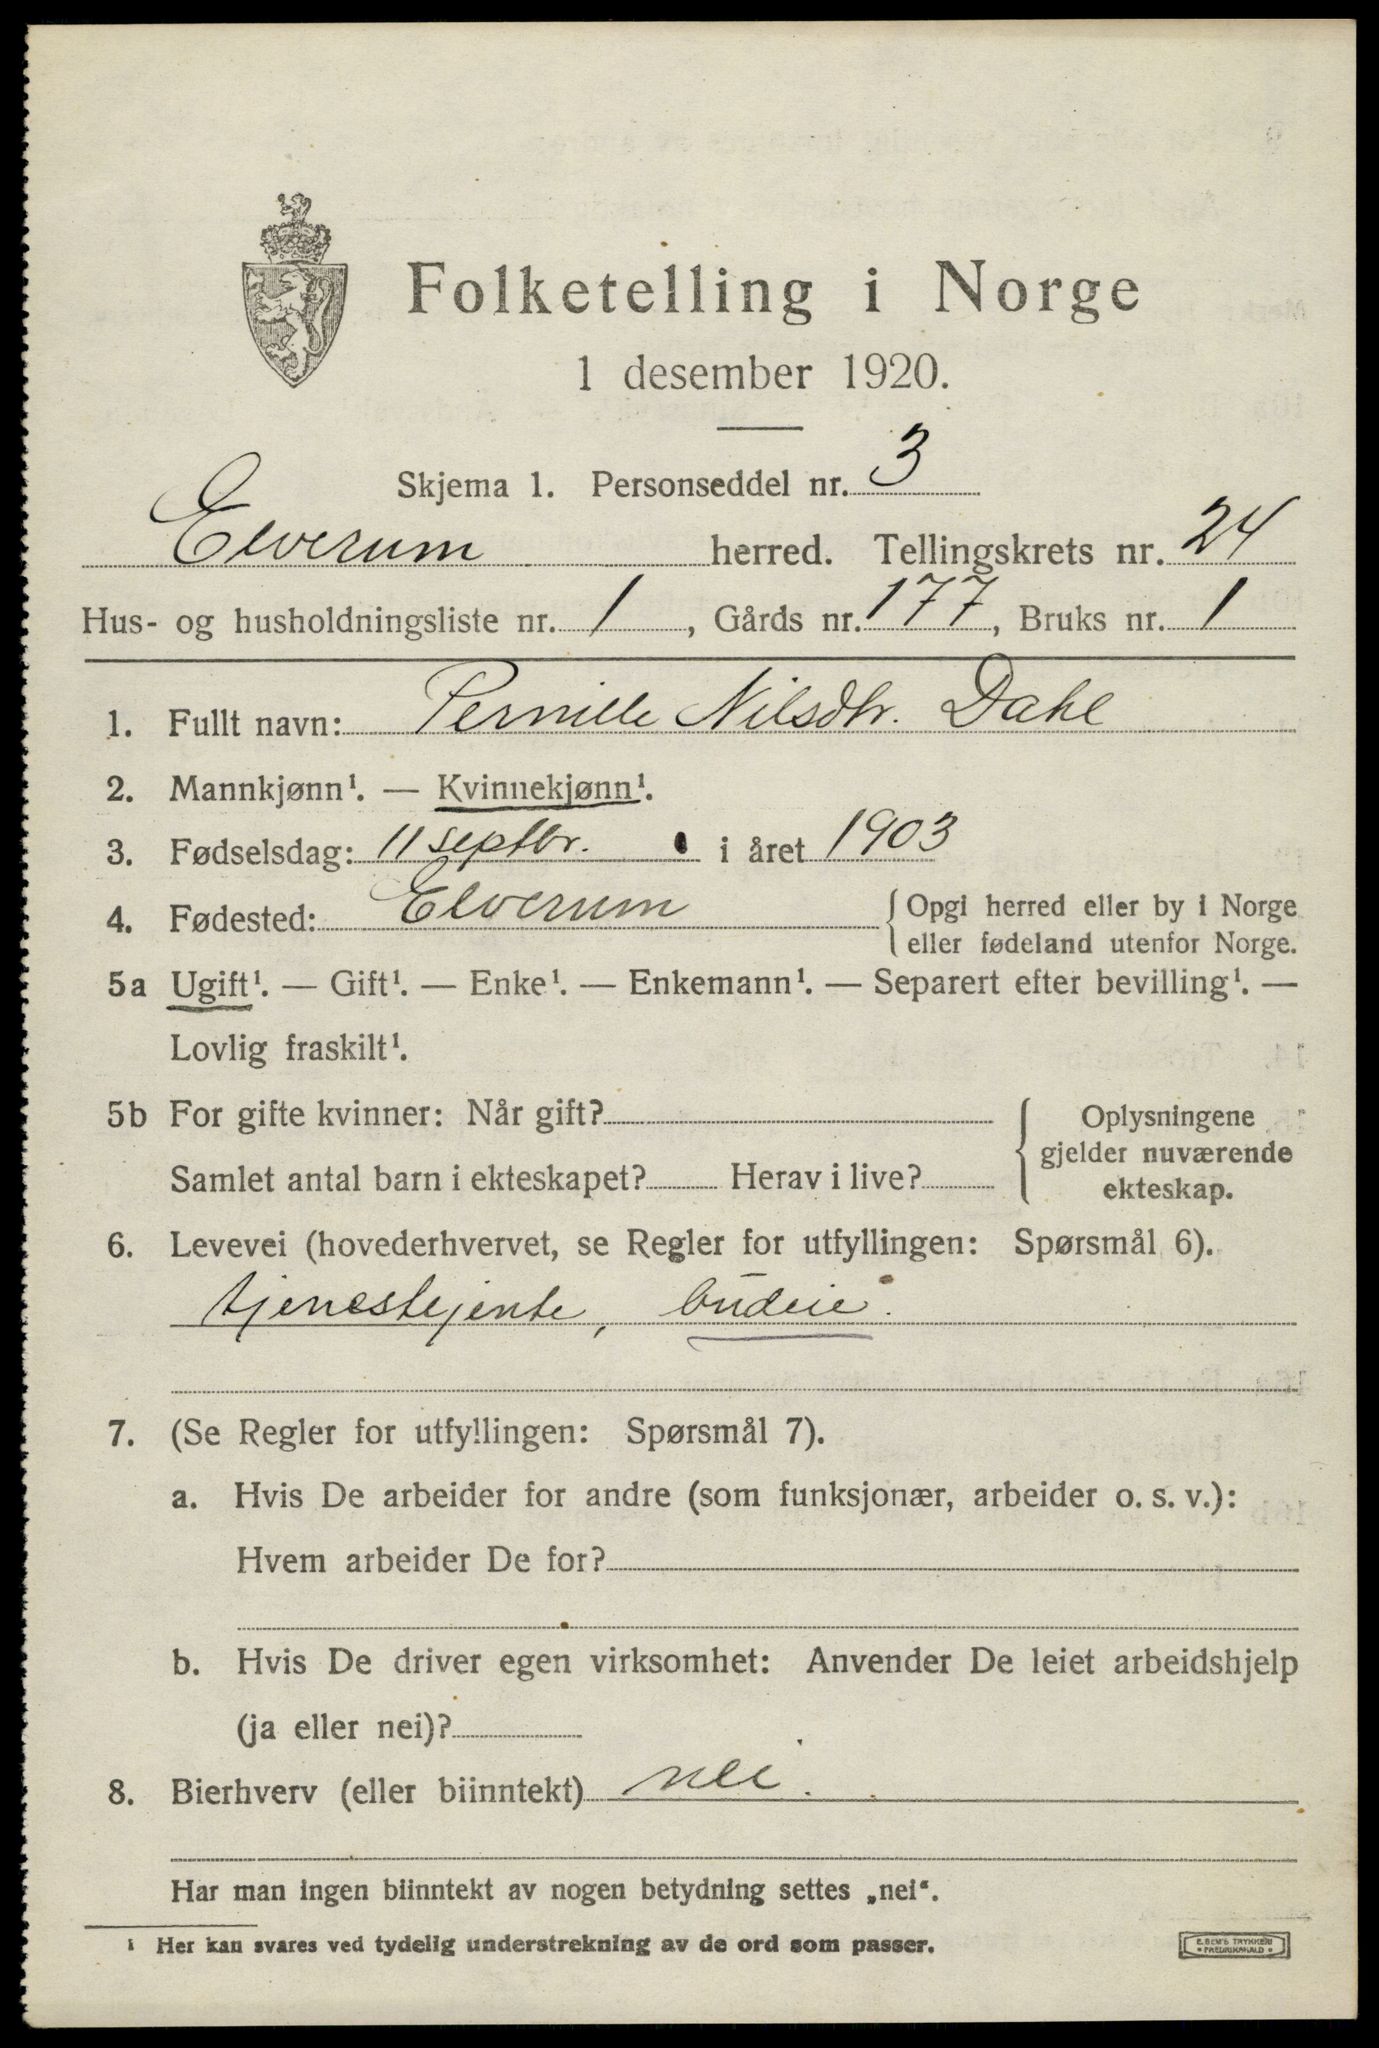 Folketelling i Norge
1 desember 1920.
Skjema 1. Personseddel nr. 3
Elverum herred. Tellingskrets nr. 24
Hus- og husholdningsliste nr. 1, Gårds nr. 177, Bruks nr. 1
1. Fullt navn: Pernille Nilsdtr. Dahl
2. Mannkjønn¹. — Kvinnekjønn¹.
3. Fødselsdag: 11 septbr. i året 1903
4. Fødested: Elverum {Opgi herred eller by i Norge
eller fødeland utenfor Norge.
5a Ugift¹. — Gift¹. — Enke¹. — Enkemann¹. — Separert efter bevilling¹. —
Lovlig fraskilt¹.
5b For gifte kvinner: Når gift?
Samlet antal barn i ekteskapet? Herav i live?
{Oplysningene
gjelder nuværende
ekteskap.
6. Levevei (hovederhvervet, se Regler for utfyllingen: Spørsmål 6).
tjenestejente, budeie.
7. (Se Regler for utfyllingen: Spørsmål 7).
a. Hvis De arbeider for andre (som funksjonær, arbeider o. s. v.):
Hvem arbeider De for?
b. Hvis De driver egen virksomhet: Anvender De leiet arbeidshjelp
(ja eller nei)?
8. Bierhverv (eller biinntekt) nei.
Har man ingen biinntekt av nogen betydning settes „nei“.
¹ Her kan svares ved tydelig understrekning av de ord som passer.
E. SEM'S TRYKKERI
FREDRIKSHALD